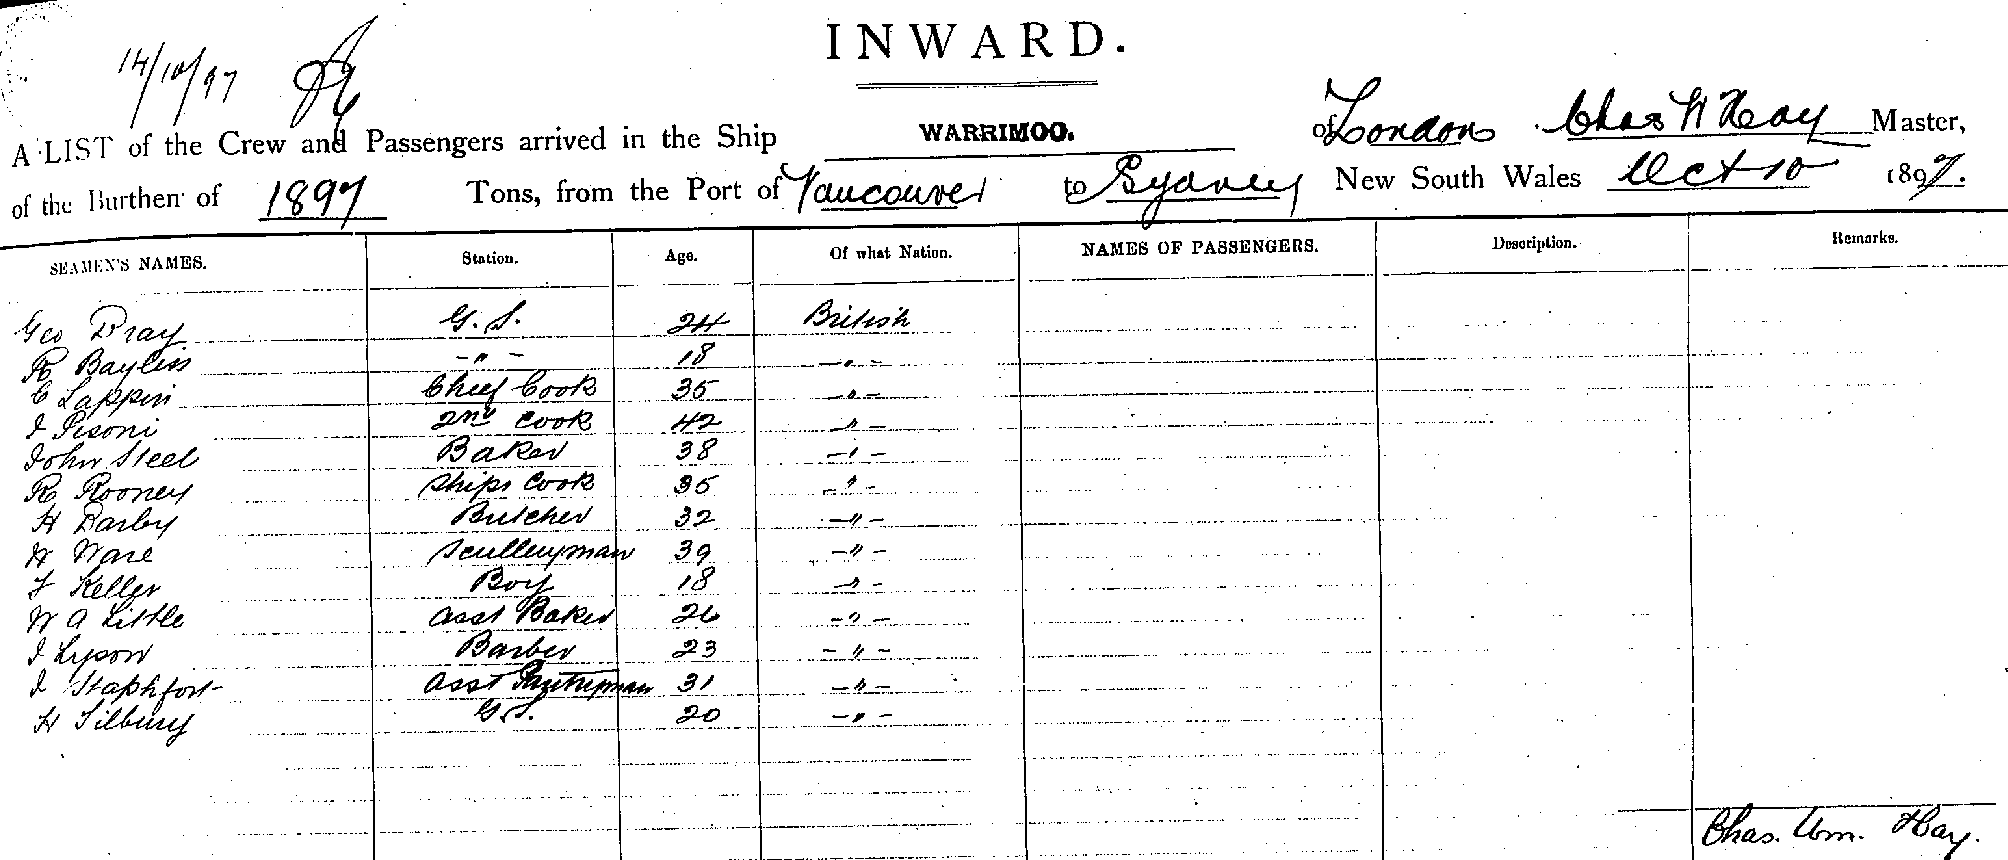 INWARD.
14/10/97
A LIST of the Crew and Passengers arrived in the Ship WARRIMOO. of London Chas W Hay Master,
of the Burthen of 1897 Tons, from the Port of Vancouver to Sydney New South Wales Oct 10 1897.
SEAMEN'S NAMES. Station. Age. Of what Nation. NAMES OF PASSENGERS. Description. Remarks.
Geo Bray G.S. 24 British
R Bayliss -"- 18 -"-
C Lappin Chief Cook 35 -"-
J Pisoni 2nd Cook 42 -"-
John Steel Baker 38 -"-
R Rooney Ships Cook 35 -"-
H Darby Butcher 32 -"-
H Ware Sculleryman 39 -"-
F Keller Boy 18 -"-
W A Little Asst Baker 26 -"-
J Lyson Barber 23 -"-
J Asst 31 -"-
H Tilbury G.S. 20 -"-
Chas. Wm. Hay.